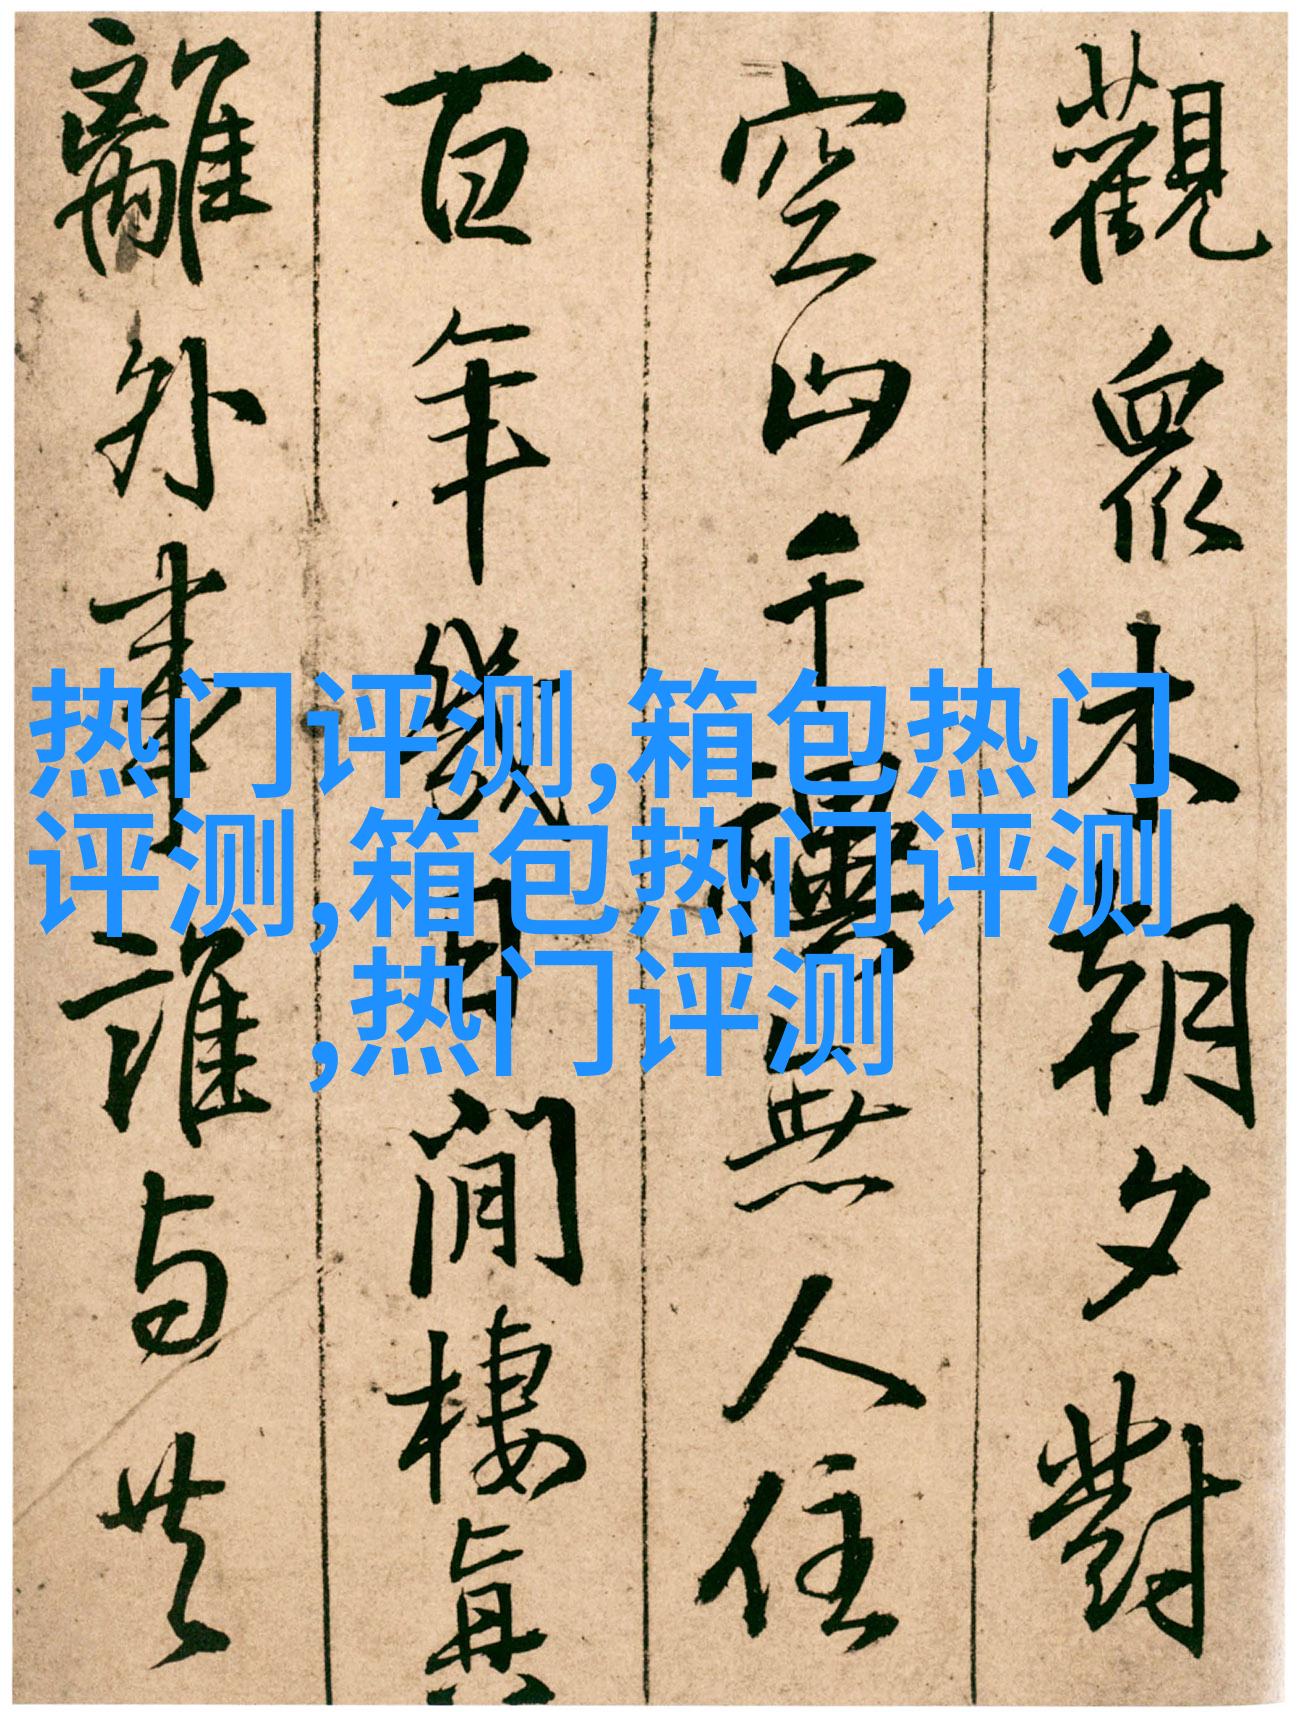 觀眾木朝夕對
空山千無人住
百年幾日閒棲真
離外事誰与共
热门评测,箱包热门
评测,箱包热门评测
,热门评测